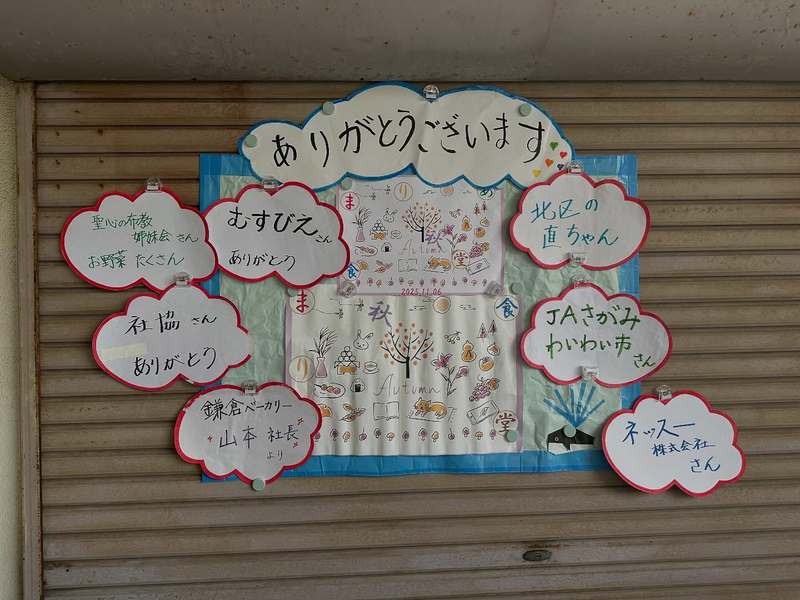 ありがとうございます
聖心の布教
姉妹会さん
お野菜 たくさん
むすびえさん
ありがとう
社協さん
ありがとう
鎌倉ベーカリー
山本 社長
より
ま
り
あ
食
堂
秋
Autumn
2025.11.06
ま
り
食
堂
秋
Autumn
北区の
直ちゃん
JAさがみ
わいわい市
さん
ネッスー
株式会社
さん